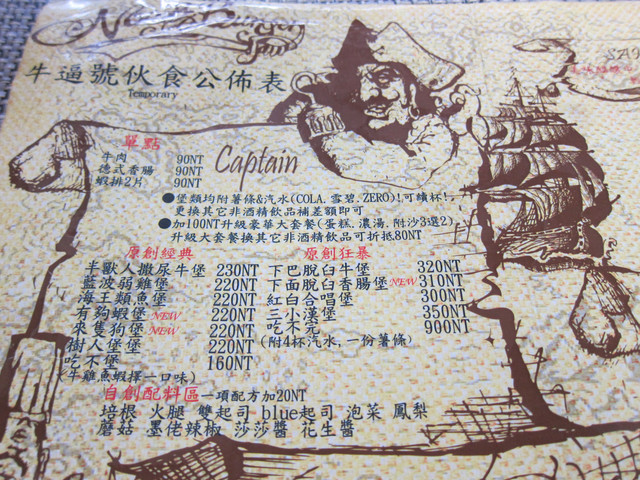 牛逼號伙食公佈表
Temporary
Captain
單點
牛肉 90NT
德式香腸 90NT
蝦排2片 90NT
●堡類均附薯條&汽水(COLA.雪碧.ZERO)!可續杯!
更換其它非酒精飲品補差額即可
●加100NT升級豪華大套餐(蛋糕.濃湯.附沙3選2)
升級大套餐換其它非酒精飲品可折抵80NT
原創經典
半獸人撒尿牛堡 230NT
藍波弱雞堡 220NT
海王類魚堡 220NT
有夠蝦堡 NEW 220NT
來隻狗堡 NEW 220NT
樹人堡堡 220NT
吃不堡 160NT
(牛雞魚蝦擇一口味)
原創狂暴
下巴脫臼牛堡 320NT
下面脫臼香腸堡 NEW 310NT
紅白合唱堡 300NT
三小漢堡 350NT
吃不完 900NT
(附4杯汽水,一份薯條)
自創配料區 一項配方加20NT
培根 火腿 雙起司 blue起司 泡菜 鳳梨
蘑菇 墨佬辣椒 莎莎醬 花生醬